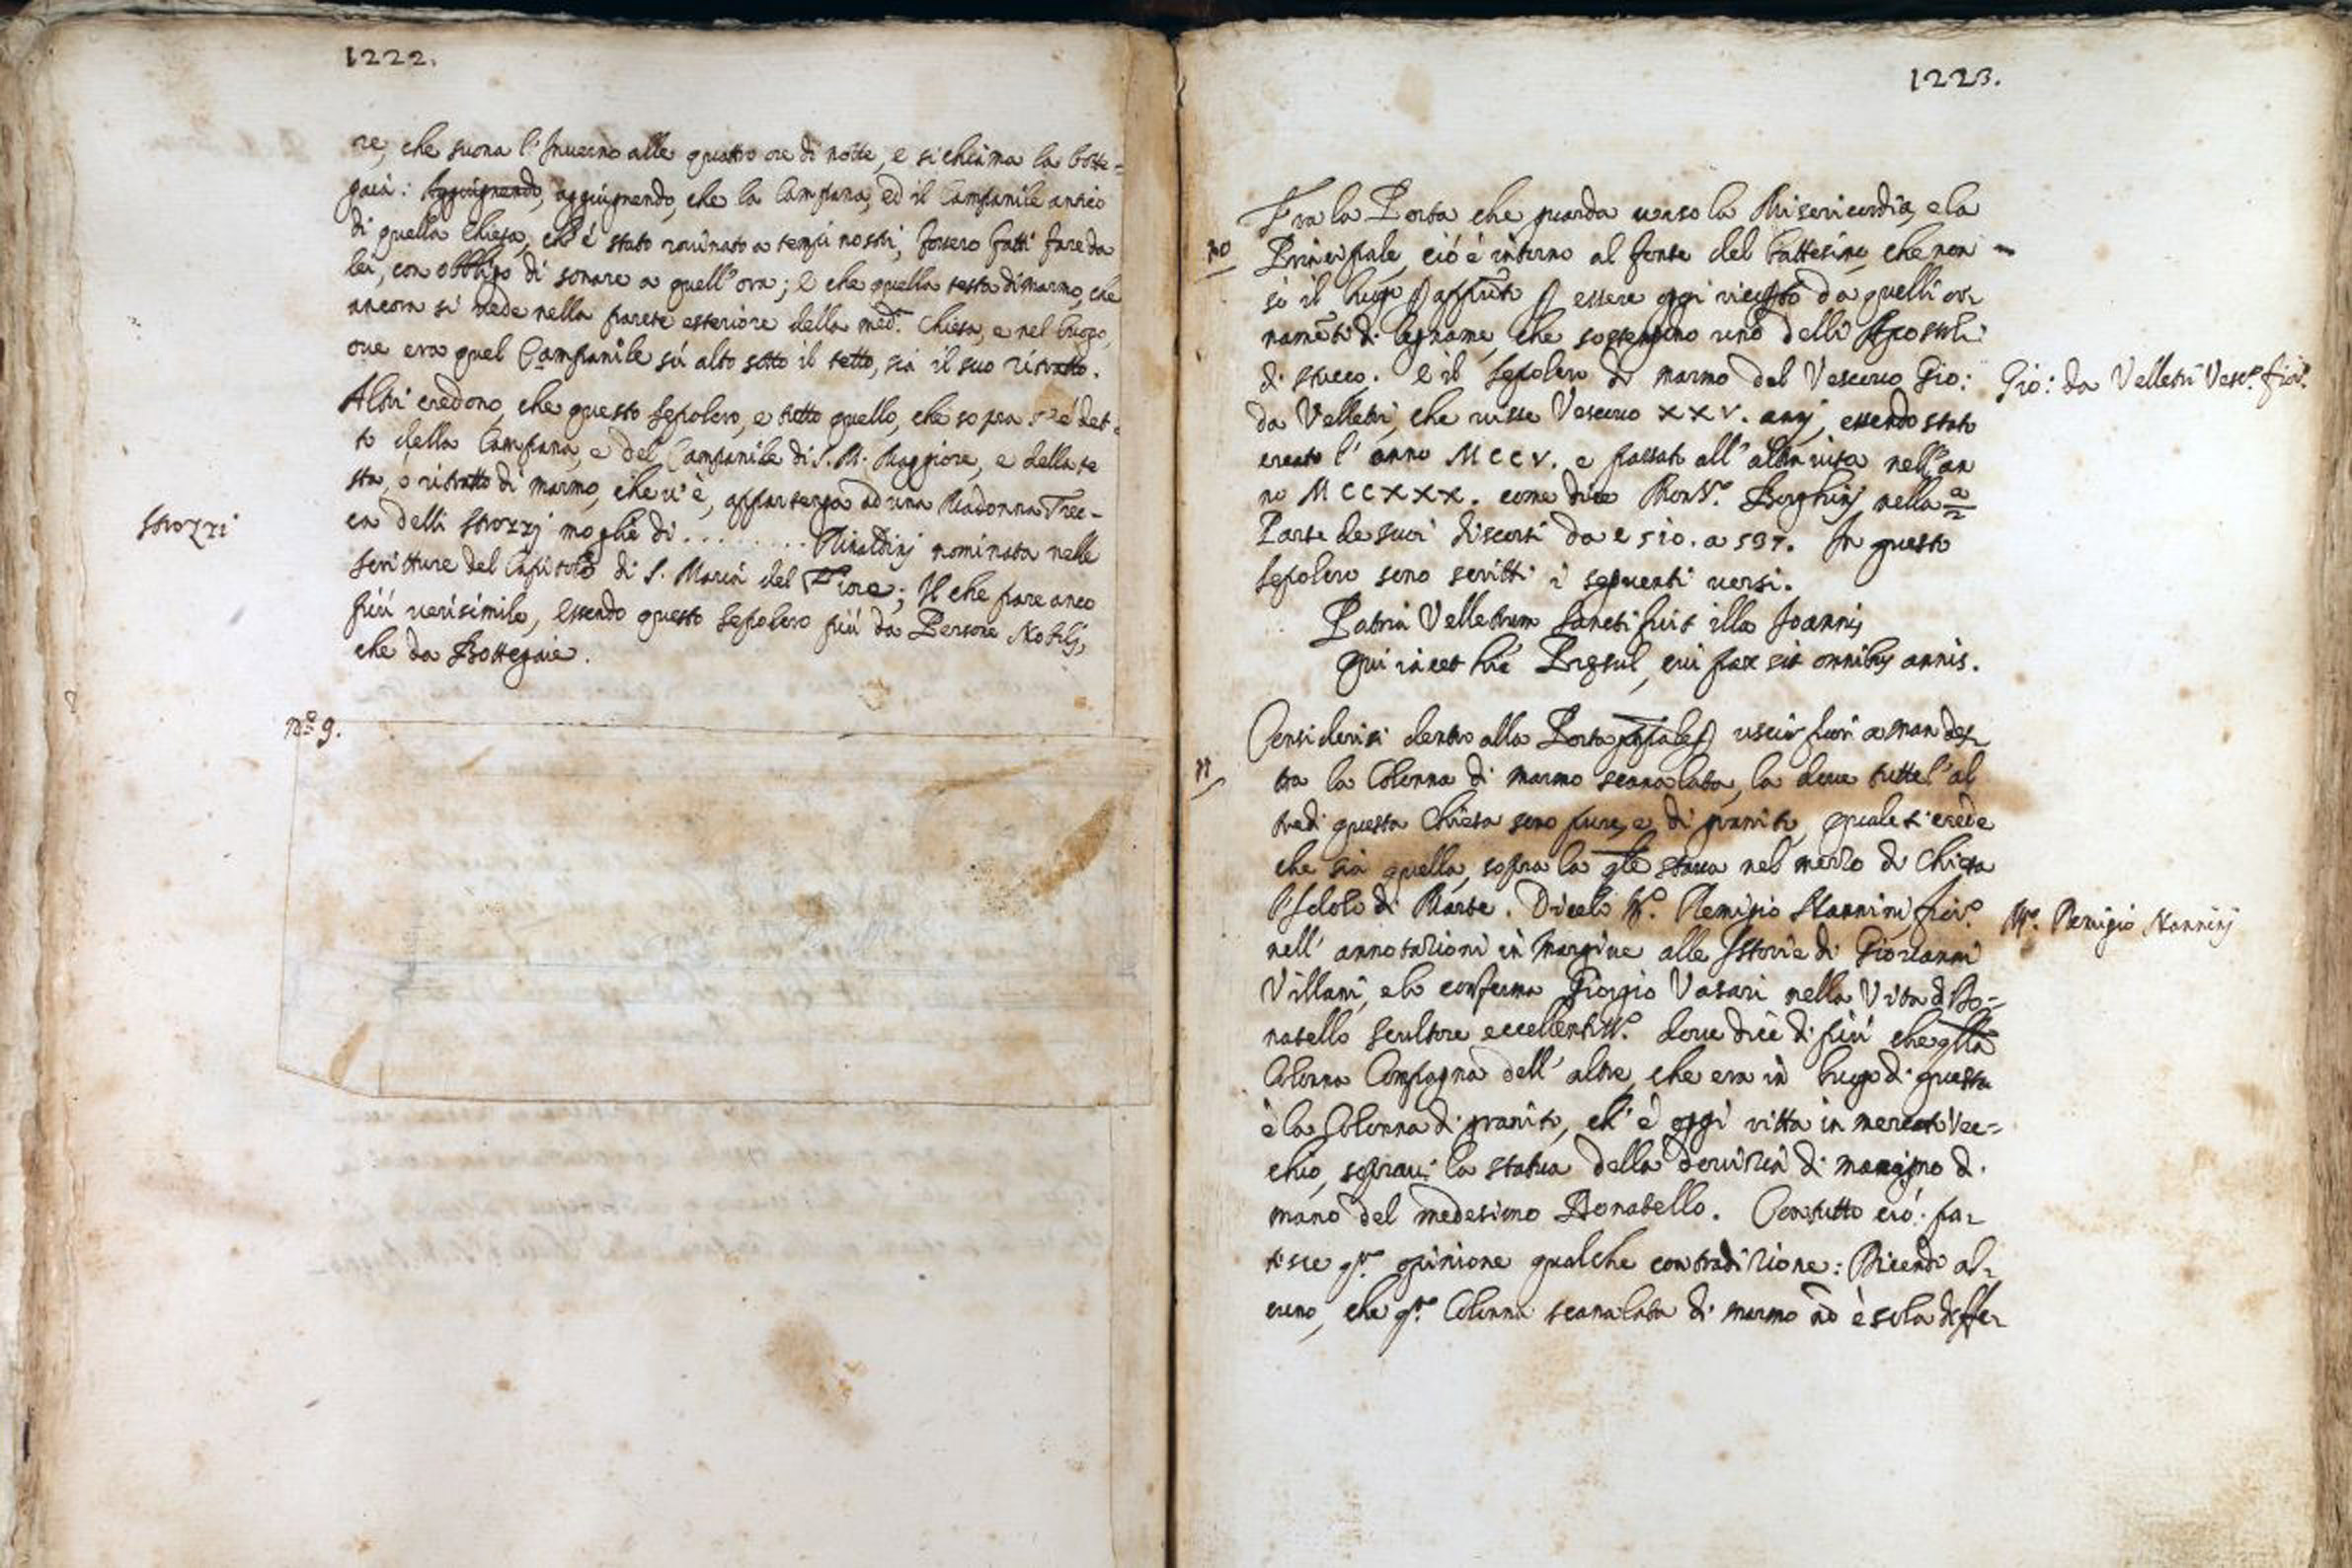 1222.
re, che suona l'Inuerno alle quattro ore di notte, e si chiama la botte=
gaia: Aggiugnendo, aggiugnendo, che la Campana, ed il Campanile antico
di quella Chiesa, ch'è stato rouinato a tempi nostri, fossero fatti fare da
lei, con obbligo di sonare a quell'ora; e che quella testa di marmo, che
ancora si uede nella parete esteriore della med.ª Chiesa, e nel luogo,
oue era quel Campanile sù alto sotto il tetto, sia il suo ritratto.
Altri credono, che questo sepolcro, e tutto quello, che sopra s'è det
to della Campana, e del Campanile di S. M. Maggiore, e della te
sta, o ritratto di marmo, che u'è, appartenga ad una Madonna Trec-
ca delli Strozzj moglie di ......... Rinaldinj nominata nelle
Strozzi
scritture del Capitolo di S. Maria del Fiore; Il che pare anco
più uerisimile, essendo questo sepolcro più da Persone Nobilj,
che da Bottegaie.
nº 9.
1223.
Fra la Porta che guarda uerso la Misericordia, e la
10 Principale, ciò è intorno al fonte del battesimo, che non
si il luogo essere oggi da quelli or
namẽti di legname, che sostengono uno delli Apostoli
di stucco. è il sepolcro di marmo del Vescouo Gio:
Gio: da Velletri Vesc.º fior.º
da Velletri, che uisse Vescouo XXV. annj, essendo stato
creato l'anno MCCV. e passato all'altra uita nell'an
no MCCXXX. come dice Mons.r Borghinj nella 2ª
Parte de suoi discorsi da c 510. a 537. In questo
sepolcro sono scritti i seguenti uersi.
Patria Velletrum Sancti fuit illa Joannis
Qui iacet hic Presul, cui pax sit omnibus annis.
Considerisi dentro alla Porta uscir fuori a man des
11 tra la Colonna di marmo scanalata, la doue tutte l'al
tre di questa Chiesa sono pure, e di granito, quale si crede
che sia quella, sopra la q̃le staua nel mezzo di Chiesa
l'Idolo di Marte. Dicelo M.º Remigio Nannini fior.º
M.º Remigio Nanninj
nell'annotazioni in margine alle Istorie di Giouanni
Villani, e lo conferma Giorgio Vasari nella Vita di Do=
natello scultore eccellentiss.º doue dice di più che q̃lla
Colonna Compagna dell'altre, che era in luogo di questa
è la Colonna di granito, ch'è oggi ritta in mercato Vec=
chio, soprauj la statua della douizia di macigno di
mano del medesimo Donatello. Contutto ciò pa
tisce q.ta opinione qualche contradizione: Dicendo al
cuno, che q.ta Colonna scanalata di marmo nõ è sola differ